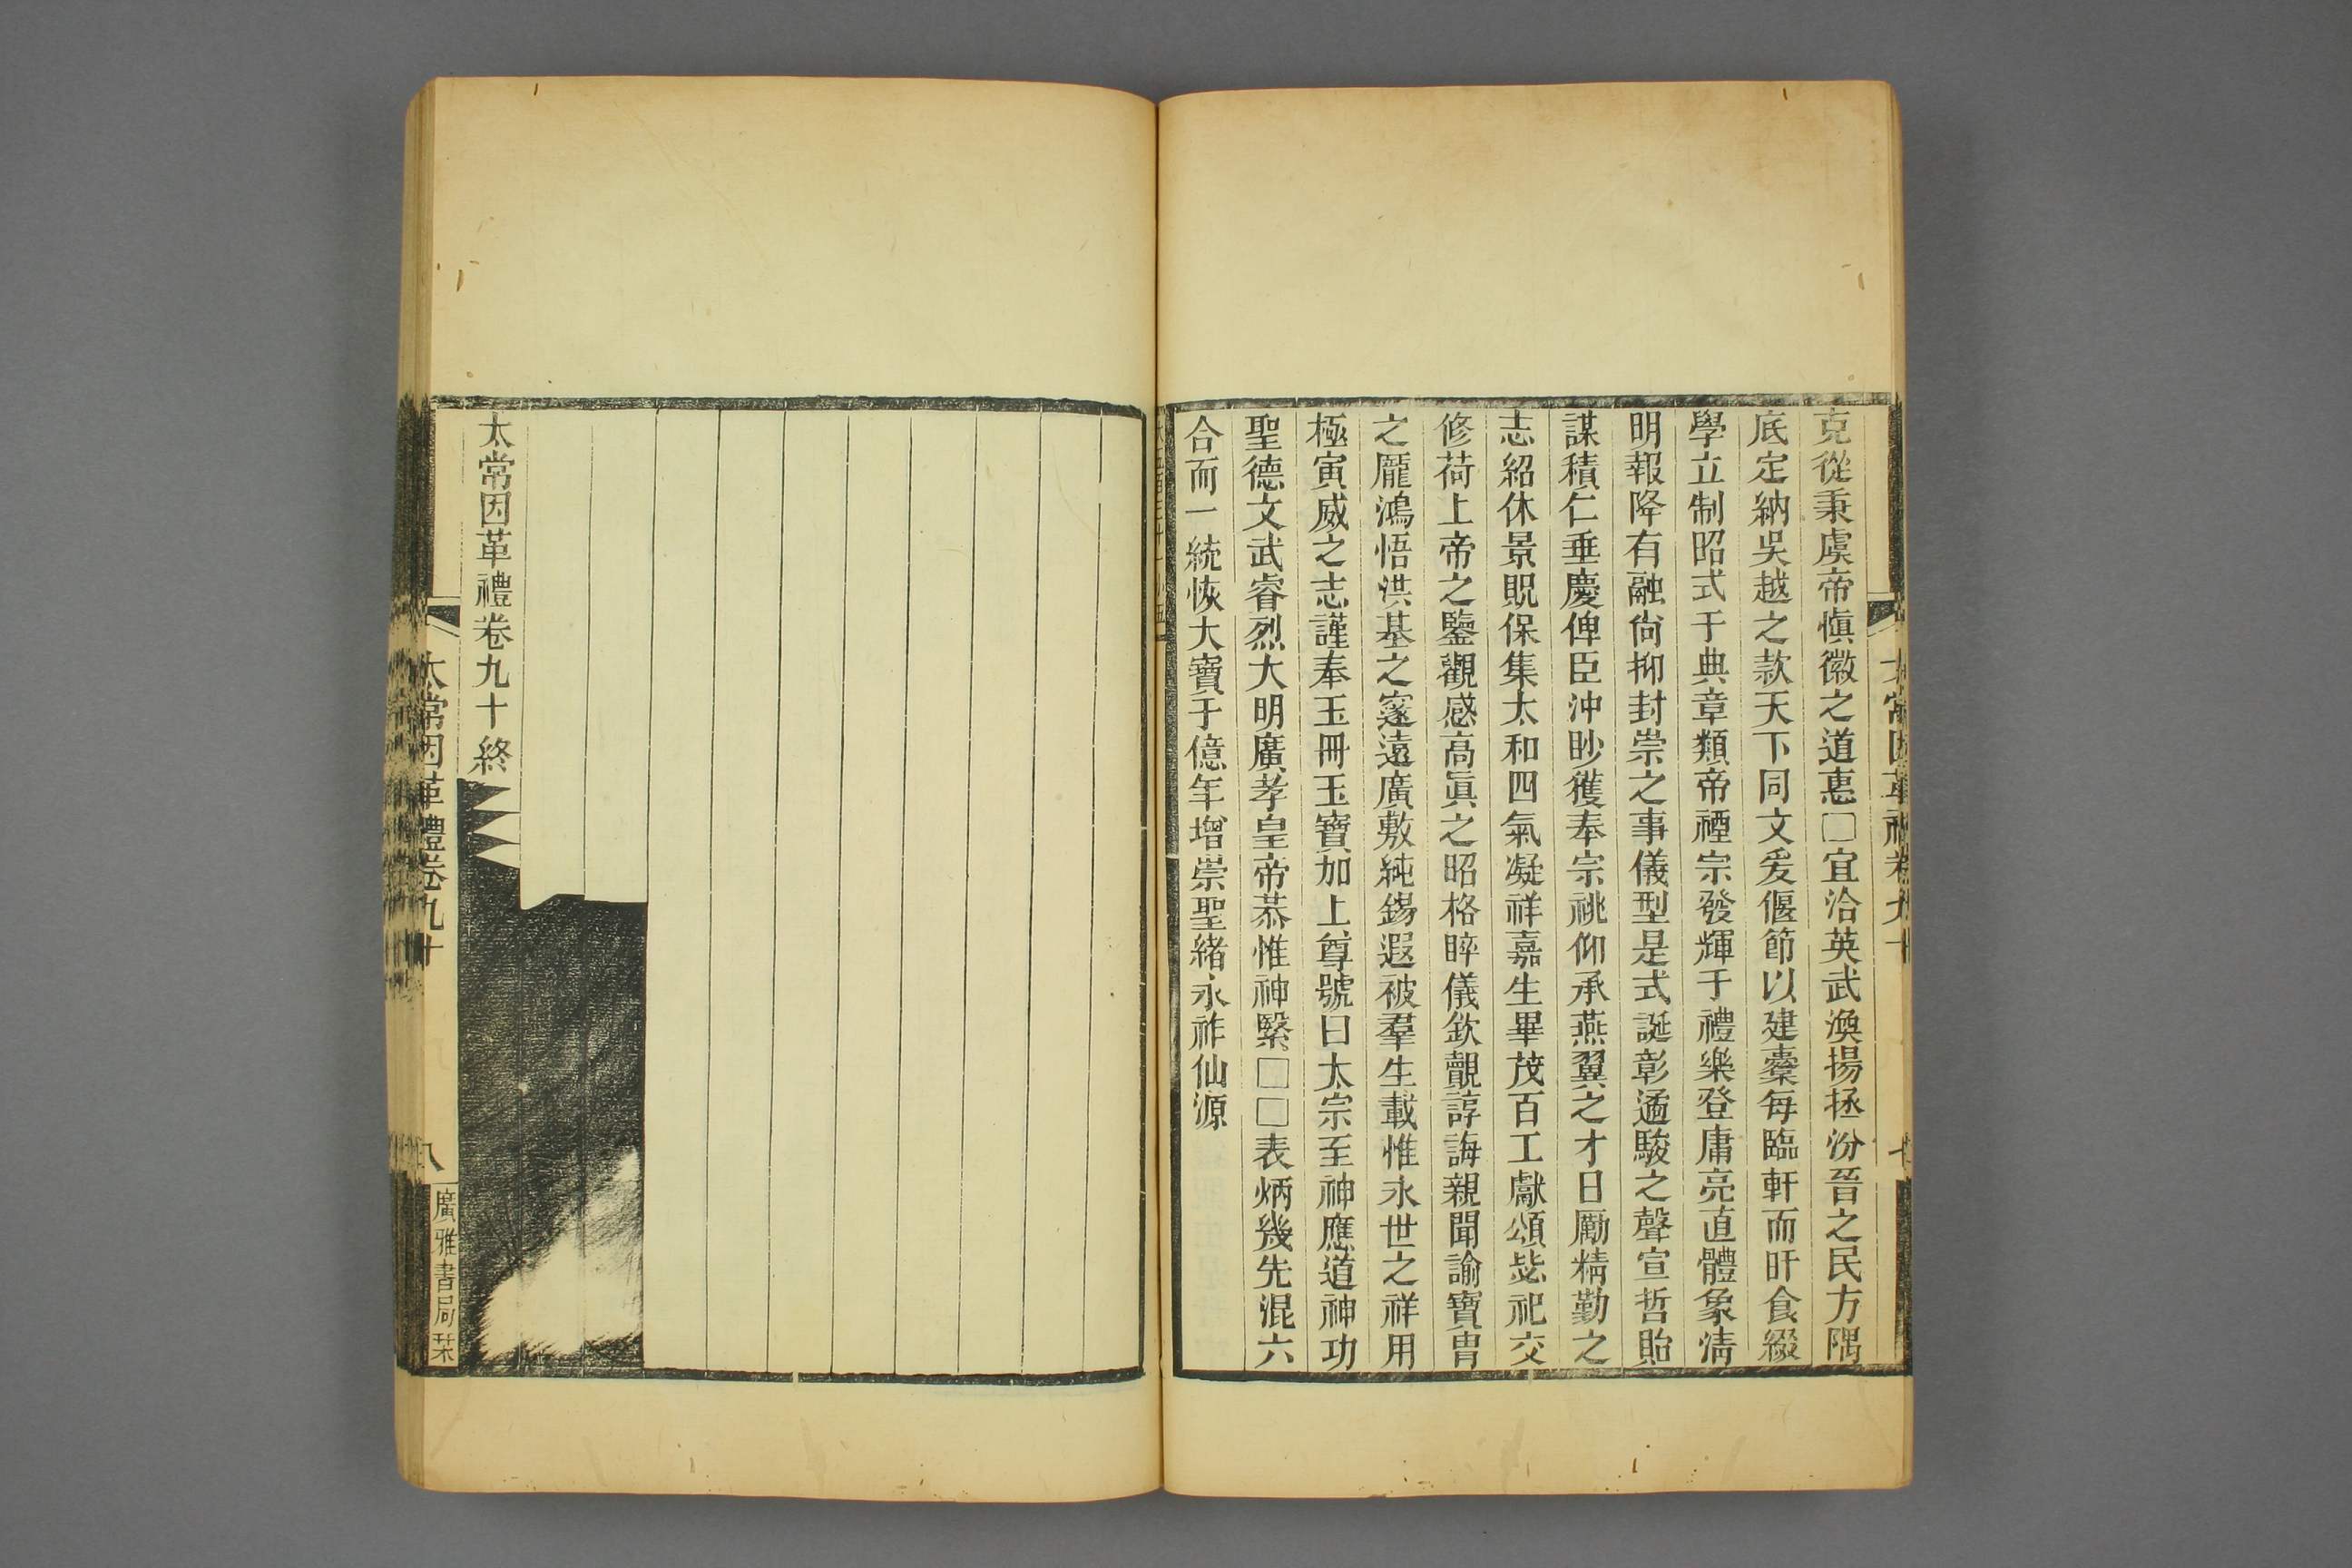 太常因革禮卷九十
七
克從秉虔帝愼徽之道惠□宜洽英武渙揚拯汾晉之民方隅
底定納吳越之款天下同文爰偃節以建櫜每臨軒而旰食綴
學立制昭式于典章類帝禋宗發輝于禮樂登庸亮直體象淸
明報降有融尙抑封崇之事儀型是式誕彰遹駿之聲宣哲貽
謀積仁垂慶俾臣沖眇獲奉宗祧仰承燕翼之才日勵精勤之
志紹休景貺保集太和四氣凝祥嘉生畢茂百工獻頌毖祀交
修荷上帝之鑒觀感高眞之昭格睟儀欽覿諄誨親聞諭寶胄
之龎鴻悟洪基之邃遠廣敷純錫遐被羣生載惟永世之祥用
極寅威之志謹奉玉冊玉寶加上尊號曰太宗至神應道神功
聖德文武睿烈大明廣孝皇帝恭惟神緊□□表炳幾先混六
合而一統恢大寶于億年增崇聖緒永祚仙源
太常因革禮卷九十終
太常因革禮卷九十
八
廣雅書局栞